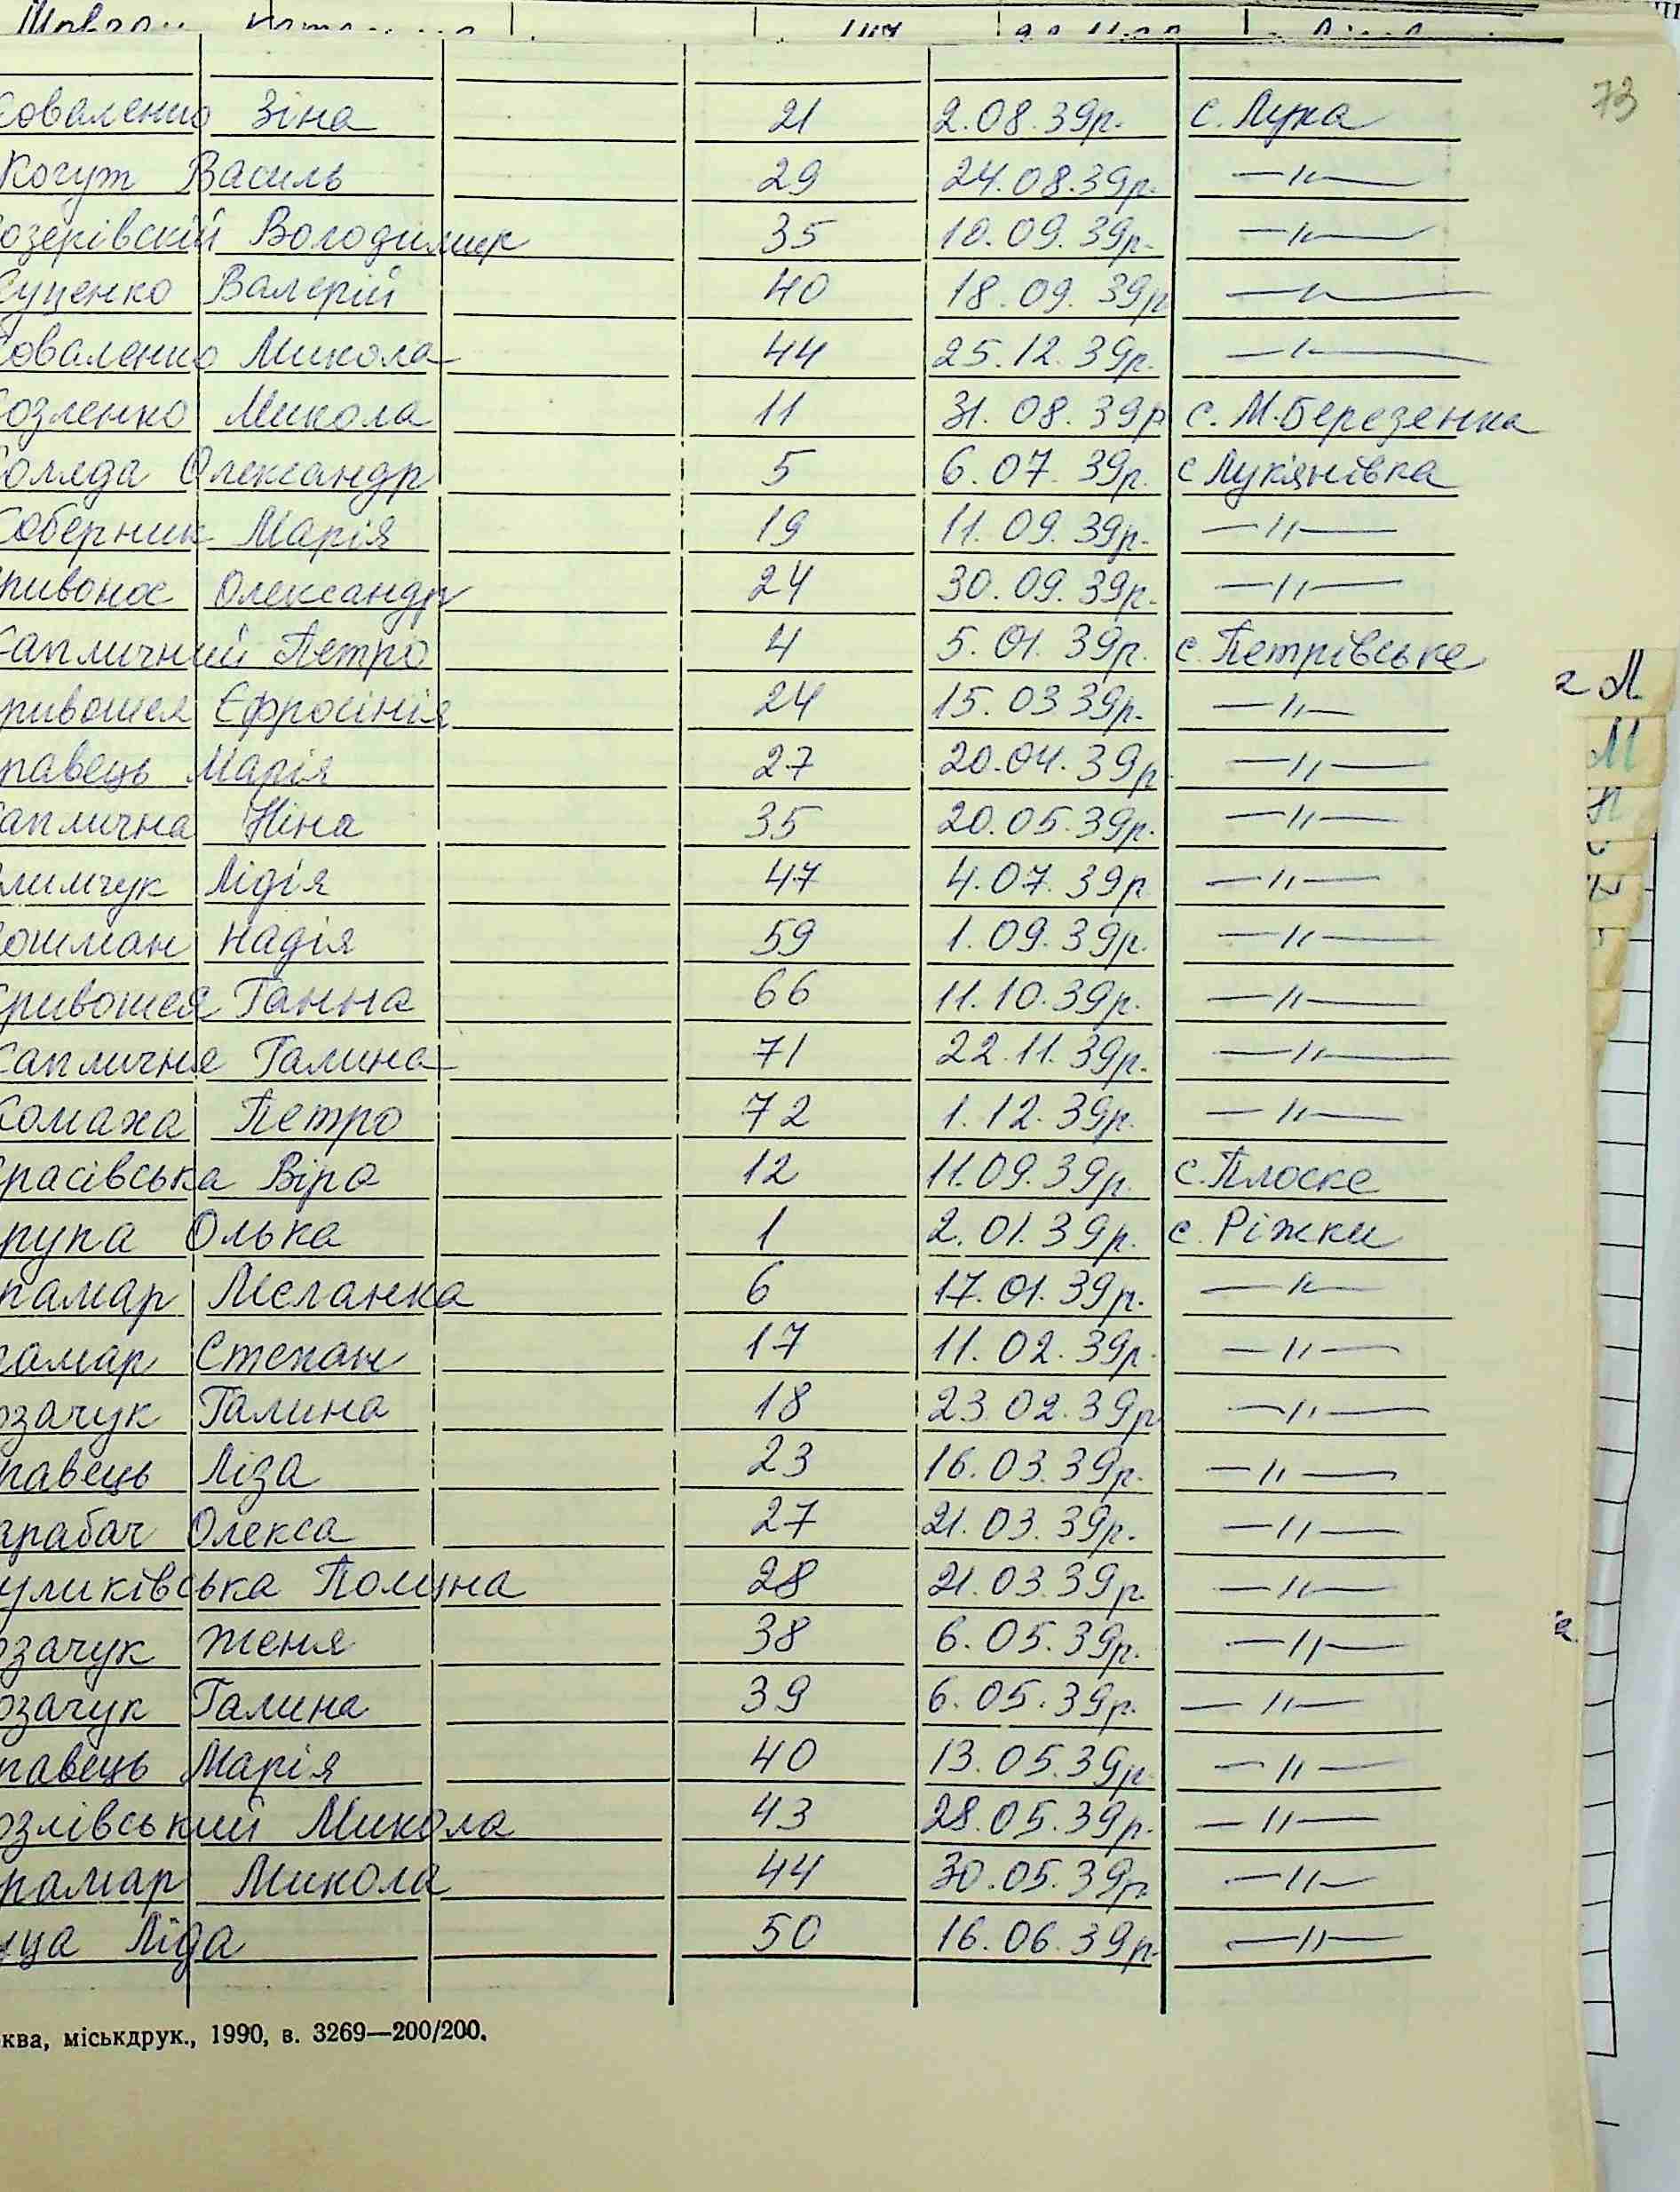 73
Коваленко Зіна 21 2.08.39р. с. Лука
Когут Василь 29 24.08.39р. —"—
Козерівскій Володимир 35 10.09.39р. —"—
Куценко Валерій 40 18.09.39р —"—
Коваленко Микола 44 25.12.39р. —"—
Козленко Микола 11 31.08.39р с. М.Березенка
Коляда Олександр 5 6.07.39р. с Лук'янівка
Коберник Марія 19 11.09.39р. —"—
ривонос Олександр 24 30.09.39р. —"—
Капличний Петро 4 5.01.39р. с. Петрівське
ривошея Єфросінія 24 15.03.39р. —"—
равець Марія 27 20.04.39р. —"—
аплична Ніна 35 20.05.39р. —"—
лимчук Лідія 47 4.07.39р —"—
ошман Надія 59 1.09.39р. —"—
ривошея Ганна 66 11.10.39р. —"—
Каплична Галина 71 22.11.39р. —"—
Комаха Петро 72 1.12.39р. —"—
расівська Віра 12 11.09.39р. с.Плоске
рупа Олька 1 2.01.39р. с. Ріжки
рамар Мєланка 6 17.01.39р. —"—
рамар Степан 17 11.02.39р. —"—
озачук Галина 18 23.02.39р —"—
равець Ліза 23 16.03.39р. —"—
арабач Олекса 27 21.03.39р. —"—
уликівська Полина 28 21.03.39р. —"—
озачук Женя 38 6.05.39р. —"—
озачук Галина 39 6.05.39р. —"—
равець Марія 40 13.05.39р. —"—
озлівський Микола 43 28.05.39р. —"—
рамар Микола 44 30.05.39р. —"—
уца Ліда 50 16.06.39р. —"—
ква, міськдрук., 1990, в. 3269—200/200.